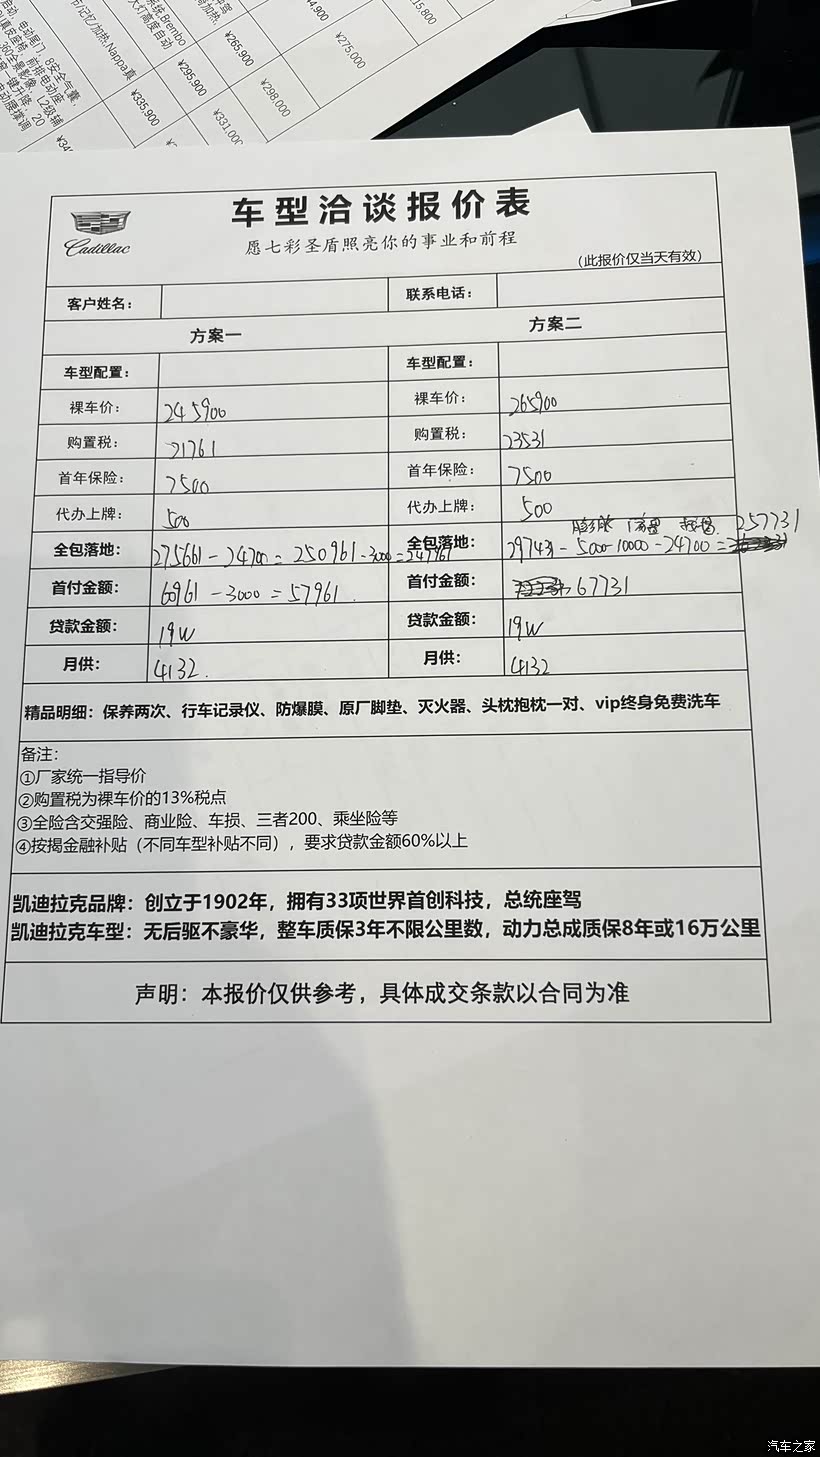 ¥265,900
¥275,000
¥295,900
¥298,000
¥335,900
¥331,000
Cadillac
车型洽谈报价表
愿七彩圣盾照亮你的事业和前程
(此报价仅当天有效)
客户姓名: 联系电话:
方案一 方案二
车型配置: 车型配置:
裸车价: 245900 裸车价: 265900
购置税: 21761 购置税: 23531
首年保险: 7500 首年保险: 7500
代办上牌: 500 代办上牌: 500
膨胀 257731
全包落地: 275661-24700=250961-3000=247961 全包落地: 297431-5000-10000-24700=
首付金额: 60961-3000=57961. 首付金额: 67731
贷款金额: 19W 贷款金额: 19W
月供: 4132. 月供: 4132
精品明细:保养两次、行车记录仪、防爆膜、原厂脚垫、灭火器、头枕抱枕一对、vip终身免费洗车
备注:
①厂家统一指导价
②购置税为裸车价的13%税点
③全险含交强险、商业险、车损、三者200、乘坐险等
④按揭金融补贴(不同车型补贴不同),要求贷款金额60%以上
凯迪拉克品牌:创立于1902年,拥有33项世界首创科技,总统座驾
凯迪拉克车型:无后驱不豪华,整车质保3年不限公里数,动力总成质保8年或16万公里
声明:本报价仅供参考,具体成交条款以合同为准
汽车之家